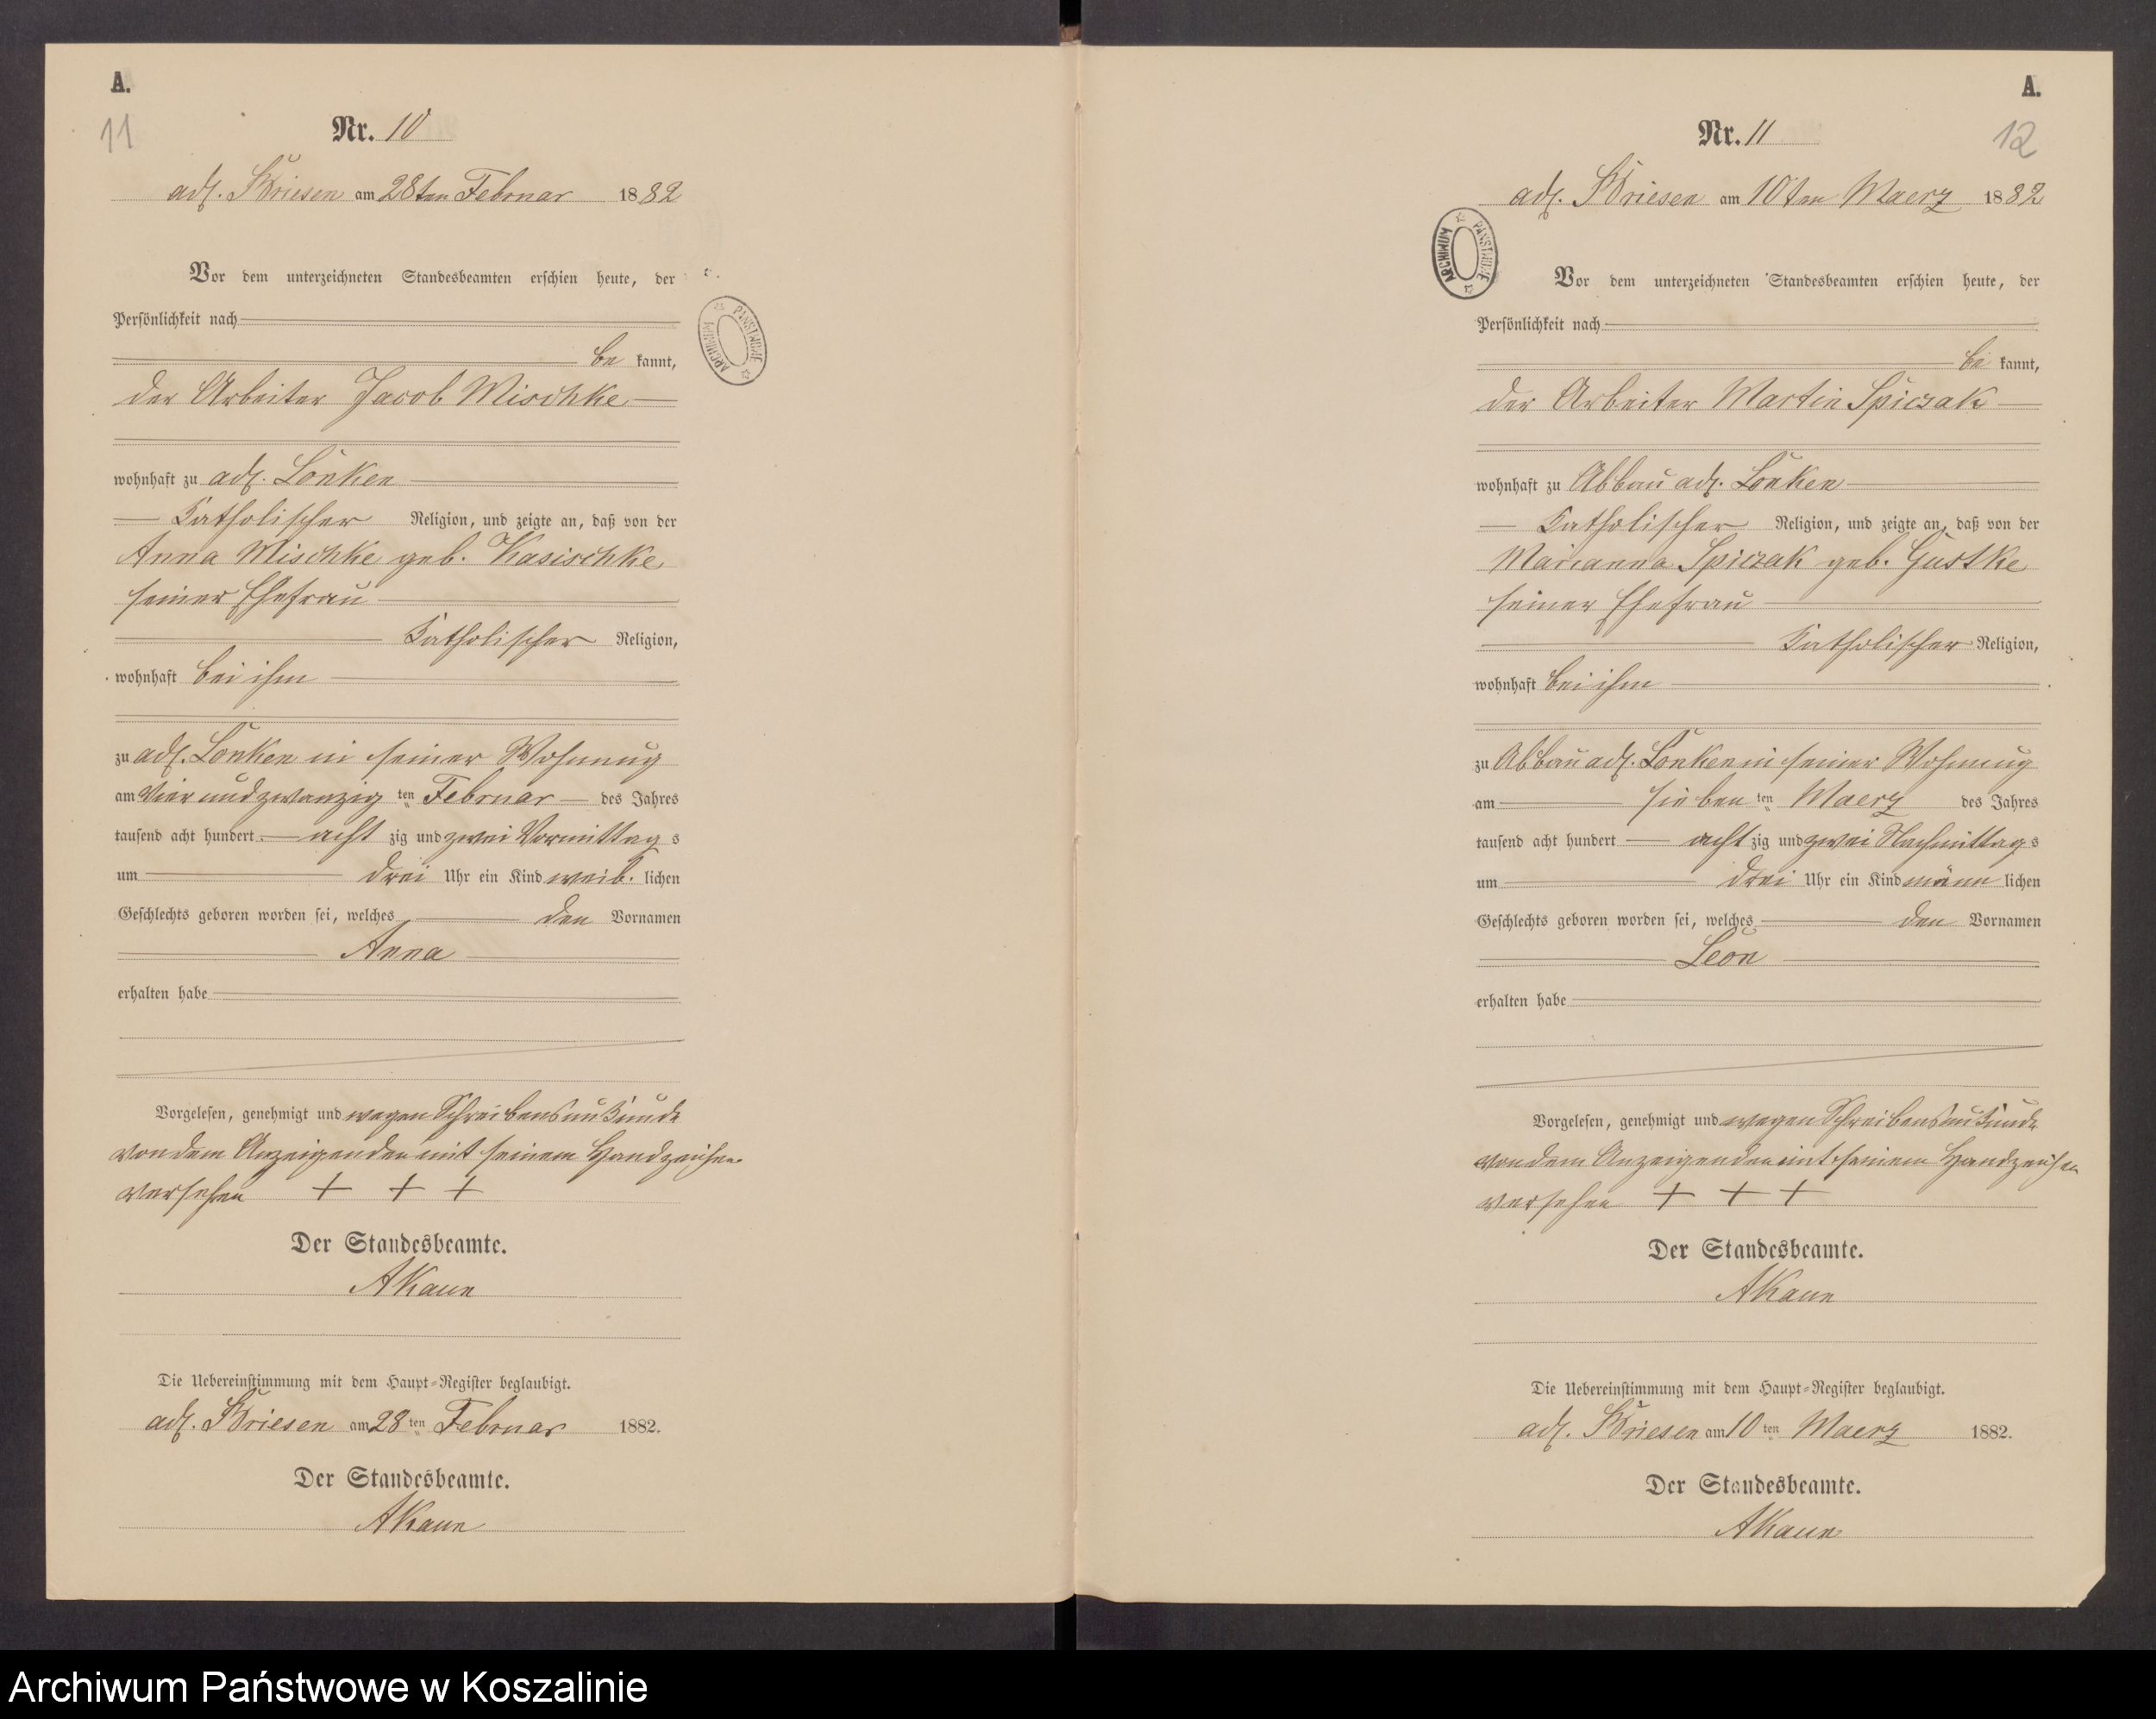 A.
11
Nr. 10
adl. Briesen am 28ten Februar 1882
Vor dem unterzeichneten Standesbeamten erschien heute, der
Persönlichkeit nach
be kannt,
der Arbeiter Jacob Mischke
wohnhaft zu adl. Lonken
Katholischer Religion, und zeigte an, daß von der
Anna Mischke geb. Kasischke
seiner Ehefrau
Katholischer Religion,
wohnhaft bei ihm
zu adl. Lonken in seiner Wohnung
am Vier und zwanzig ten Februar des Jahres
tausend acht hundert acht zig und zwei Vormittag s
um drei Uhr ein Kind weib. lichen
Geschlechts geboren worden sei, welches den Vornamen
Anna
erhalten habe
Vorgelesen, genehmigt und wegen Schreibensunkunde
von dem Anzeigenden mit seinem Handzeichen
versehen + + +
Der Standesbeamte.
AKaun
Die Uebereinstimmung mit dem Haupt-Register beglaubigt.
adl. Briesen am 28 ten Februar 1882.
Der Standesbeamte.
AKaun
A.
12
Nr. 11
adl. Briesen am 10ten Maerz 1882
ARCHIWUM PAŃSTWOWE
Vor dem unterzeichneten Standesbeamten erschien heute, der
Persönlichkeit nach
be kannt,
der Arbeiter Martin Spiczak
wohnhaft zu Abbau adl. Lonken
Katholischer Religion, und zeigte an, daß von der
Marianna Spiczak geb. Gustke
seiner Ehefrau
Katholischer Religion,
wohnhaft bei ihm
zu Abbau adl. Lonken in seiner Wohnung
am sieben ten Maerz des Jahres
tausend acht hundert acht zig und zwei Nachmittag s
um drei Uhr ein Kind männ lichen
Geschlechts geboren worden sei, welches den Vornamen
Leon
erhalten habe
Vorgelesen, genehmigt und wegen Schreibensunkunde
von dem Anzeigenden mit seinem Handzeichen
versehen + + +
Der Standesbeamte.
AKaun
Die Uebereinstimmung mit dem Haupt-Register beglaubigt.
adl. Briesen am 10 ten Maerz 1882.
Der Standesbeamte.
AKaun
ARCHIWUM PAŃSTWOWE
Archiwum Państwowe w Koszalinie